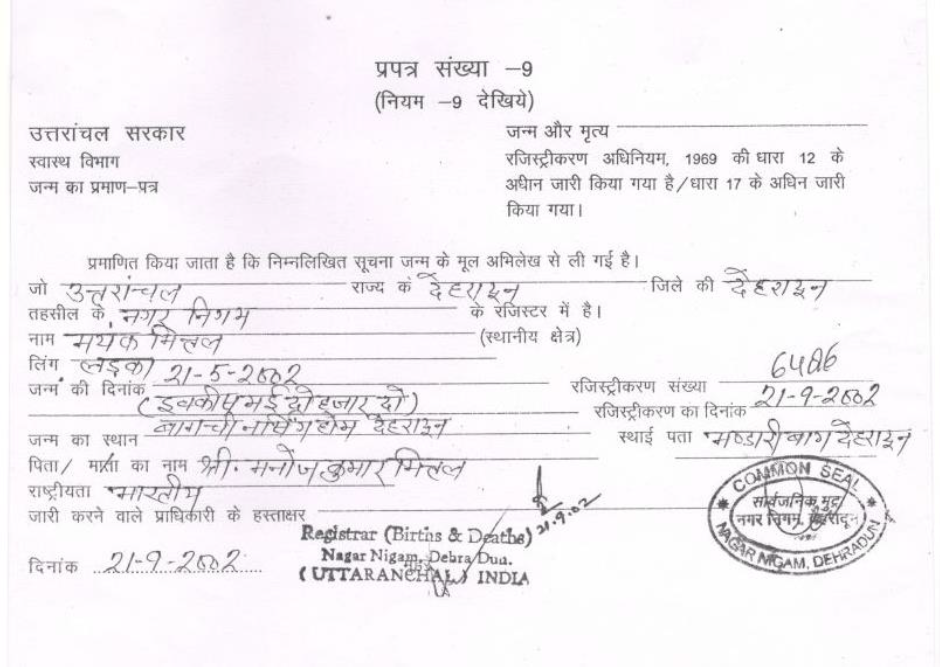 प्रपत्र संख्या –9
(नियम –9 देखिये)
उत्तरांचल सरकार
स्वास्थ विभाग
जन्म का प्रमाण–पत्र
जन्म और मृत्य
रजिस्ट्रीकरण अधिनियम, 1969 की धारा 12 के
अधीन जारी किया गया है/धारा 17 के अधिन जारी
किया गया।
प्रमाणित किया जाता है कि निम्नलिखित सूचना जन्म के मूल अभिलेख से ली गई है।
जो उत्तरांचल राज्य के देहरादून जिले की देहरादून
तहसील के नगर निगम के रजिस्टर में है।
नाम मयंक मित्तल (स्थानीय क्षेत्र)
लिंग लड़का
जन्म की दिनांक 21-5-2002
(इक्कीस मई दो हजार दो)
रजिस्ट्रीकरण संख्या 6486
रजिस्ट्रीकरण का दिनांक 21-9-2002
जन्म का स्थान बागची नर्सिंग होम देहरादून
स्थाई पता भण्डारी बाग देहरादून
पिता/ माता का नाम श्री. मनोज कुमार मित्तल
राष्ट्रीयता भारतीय
जारी करने वाले प्राधिकारी के हस्ताक्षर
21.9.02
Registrar (Births & Deaths)
Nagar Nigam, Dehra Dun.
(UTTARANCHAL) INDIA
दिनांक 21-9-2002
COMMON SEAL
सार्वजनिक मुद्रा
नगर निगम, देहरादून
NAGAR NIGAM, DEHRADUN